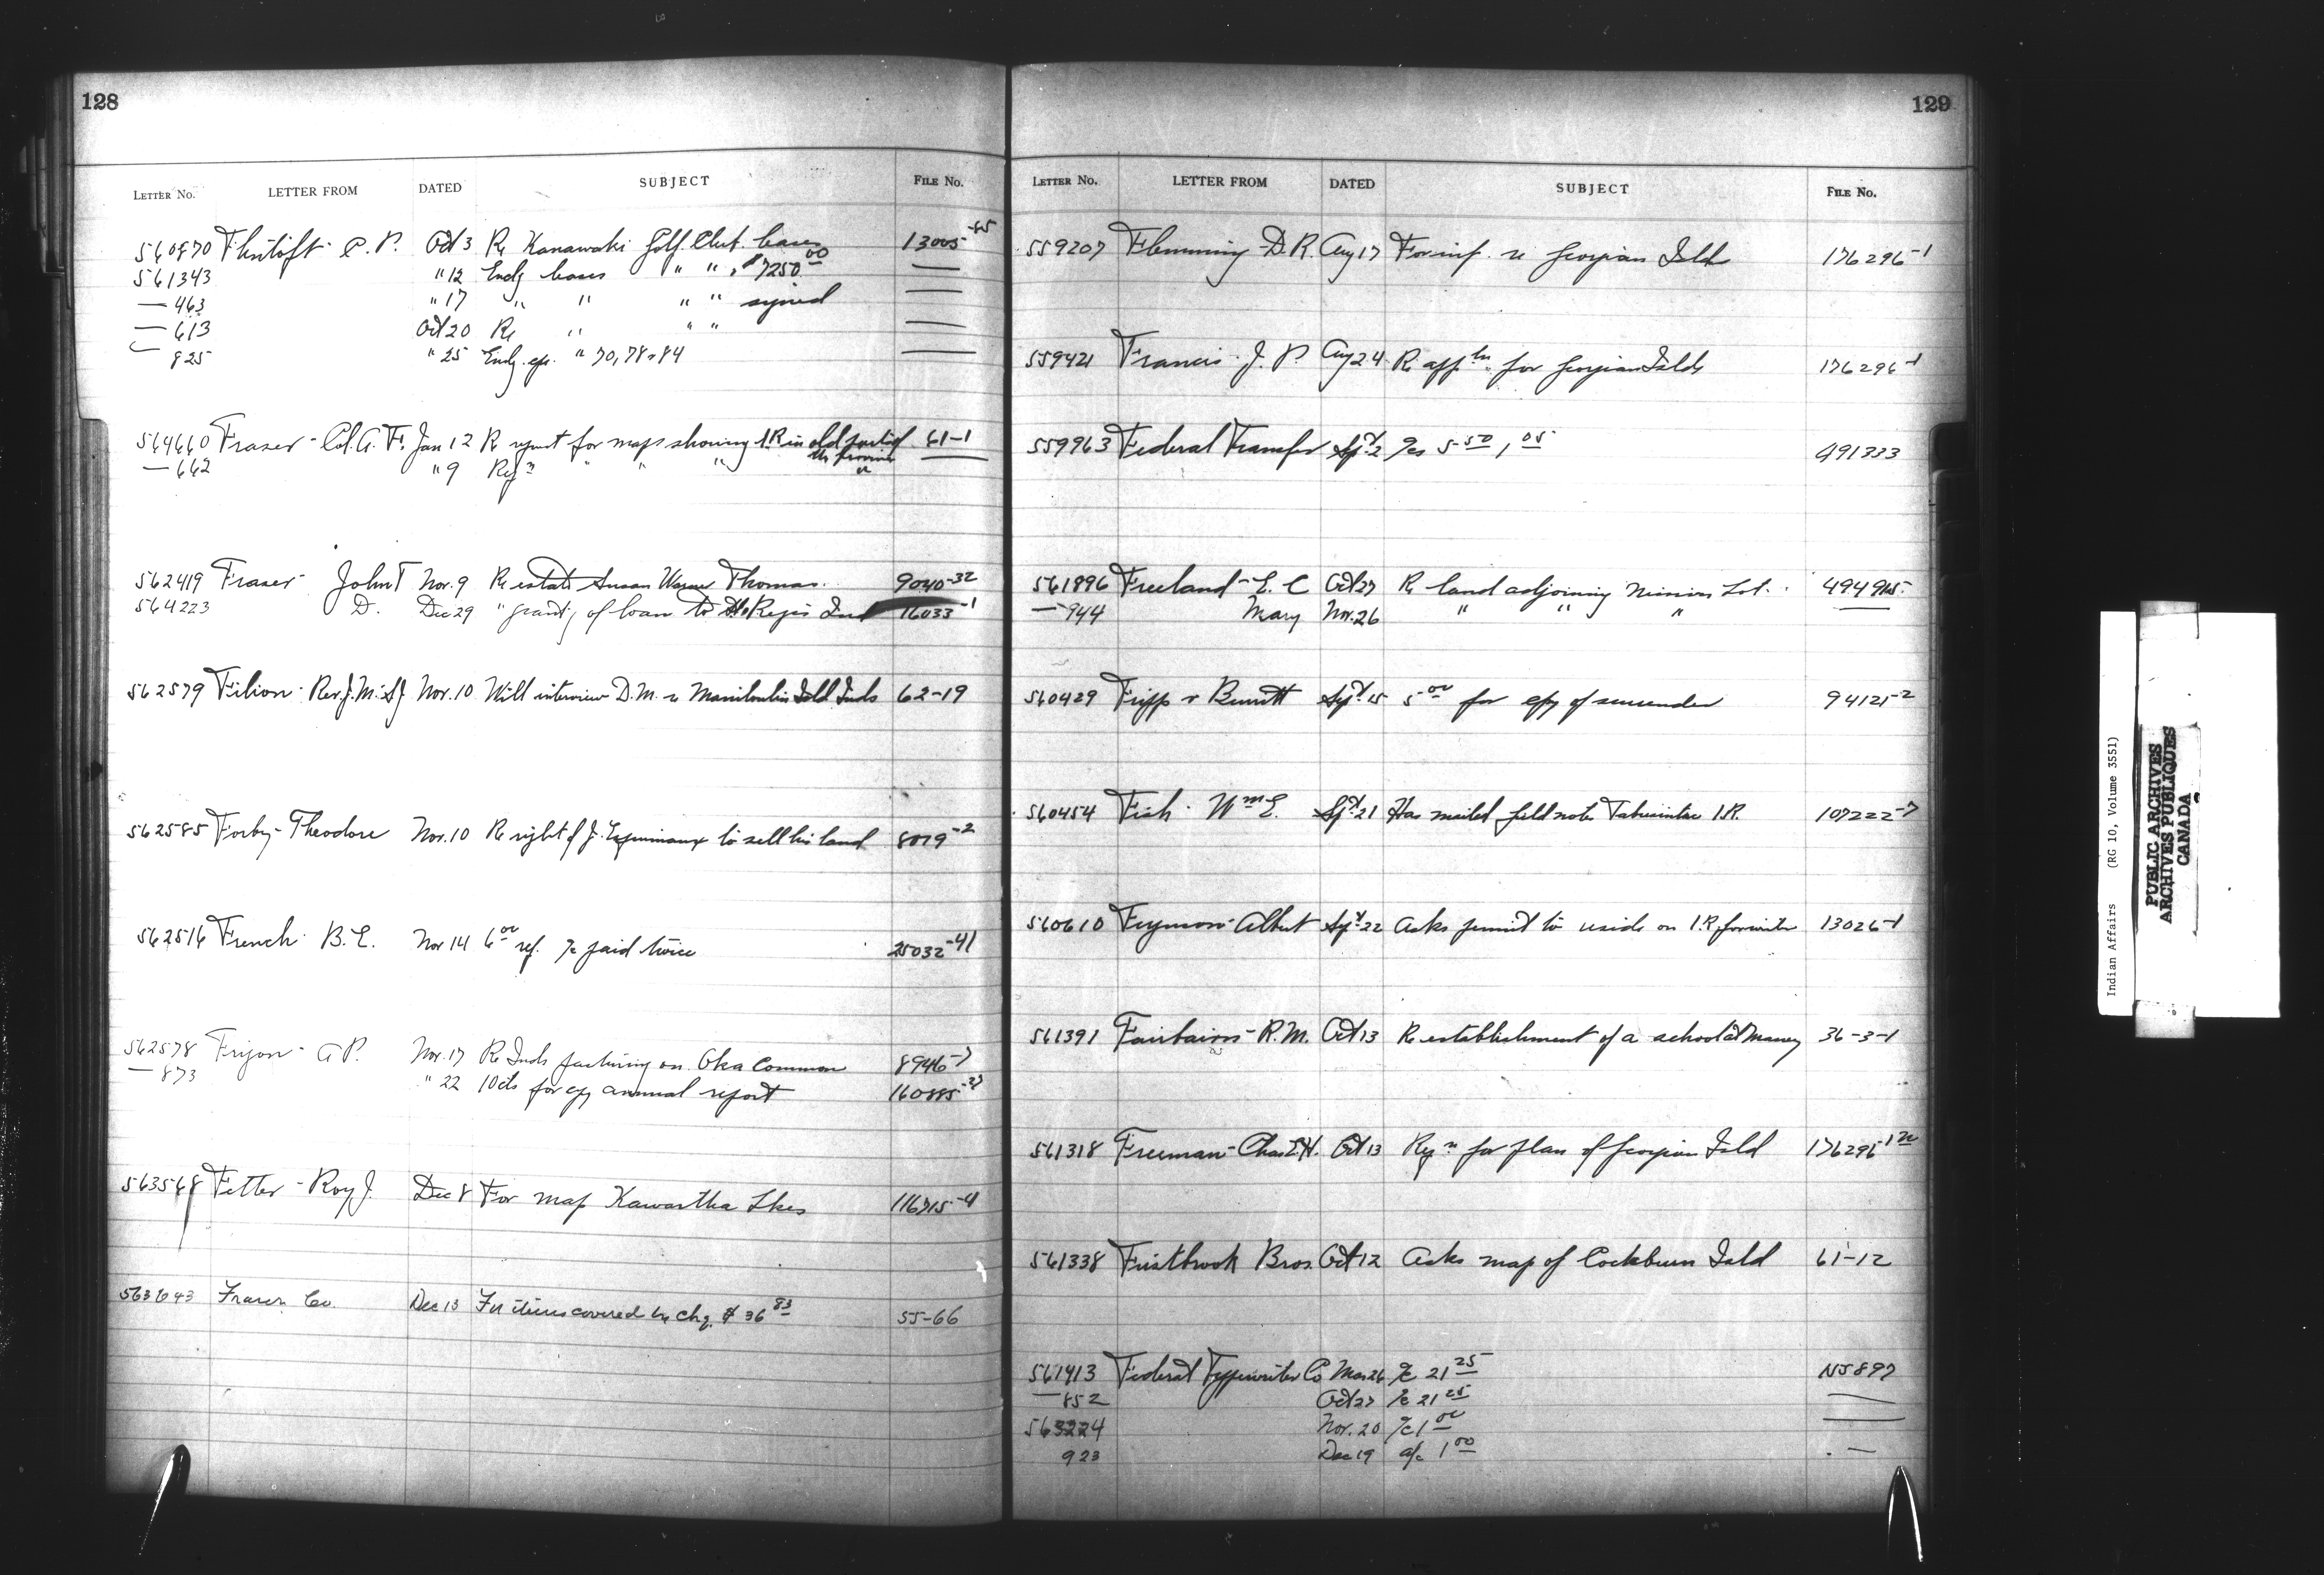 128
LETTER No. LETTER FROM DATED SUBJECT FILE No.
560870 Flintoft - C. P. Oct 3 Re Kanawaki Golf Club lease 13005-65
561343 " 12 Encg lease " " $7250.00 —
— 463 " 17 " " " " signed —
— 613 Oct 20 Re " " " —
— 825 " 25 Encg. cps. " 70, 78 & 84 —
564660 Fraser - Col. A. F. Jan 12 Re request for maps showing I.R. in old part of 61-1
the Province
— 662 " 9 " " " " —
562419 Fraser - John T Nov. 9 Re estate Susan Warner Thomas. 9040-32
564223 D. Dec 29 " granting of loan to St. Regis Ind 16033-1
562579 Filion - Rev. J. M. SJ Nov. 10 Will interview D.M. re Manitoulin Isld Inds 62-19
562585 Forby - Theodore Nov. 10 Re right of J. to sell his land 8019-2
562516 French - B. E. Nov 14 6.00 ref. a/c paid twice 25032-41
562578 Frijon - A P. Nov. 17 Re Inds pasturing on Oka Common 8946-7
— 873 " 22 10cts for cpy annual report 160885-27
563568 Fetter - Roy J. Dec 8 For map Kawartha Lkes 116715-4
563643 Fraser Co. Dec 13 For items covered by chq. $36.83 55-66
129
LETTER No. LETTER FROM DATED SUBJECT FILE No.
559207 Flemming - D. R. Aug 17 For inf. re Georgian Isld 176296-1
559421 Francis - J. P. Aug 24 Re appln for Georgian Islds 176296-1
559963 Federal Transfer Sept 2 a/cs 5.50, 1.05 491333
561896 Freeland - E. C Oct 27 Re land adjoining Mission Lot. 494965
— 944 Mary Nov. 26 " " " —
560429 Fripp & Burritt Sept. 15 5.00 for cpy of surrender 94121-2
560454 Fish - Wm E. Sept 21 Has mailed field notes I.R. 107222-7
560610 Albert Sept 22 Asks permit to reside on I.R. for winter 13026-1
561391 Fairbairn - R. M. Oct 13 Re establishment of a school at 36-3-1
561318 Freeman - Chas. E. H. Oct 13 for plan of Georgian Isld
561338 Firstbrook Bros. Oct 12 Asks map of Cockburn Isld 61-12
561413 Federal Typewriter Co Mar 26 a/c 21.25 NS897
— 852 Oct 27 a/c 21.25 —
563224 Nov. 20 a/c 1.00 —
923 Dec 19 a/c 1.00 —
Indian Affairs (RG 10, Volume 3551)
PUBLIC ARCHIVES
ARCHIVES PUBLIQUES
CANADA